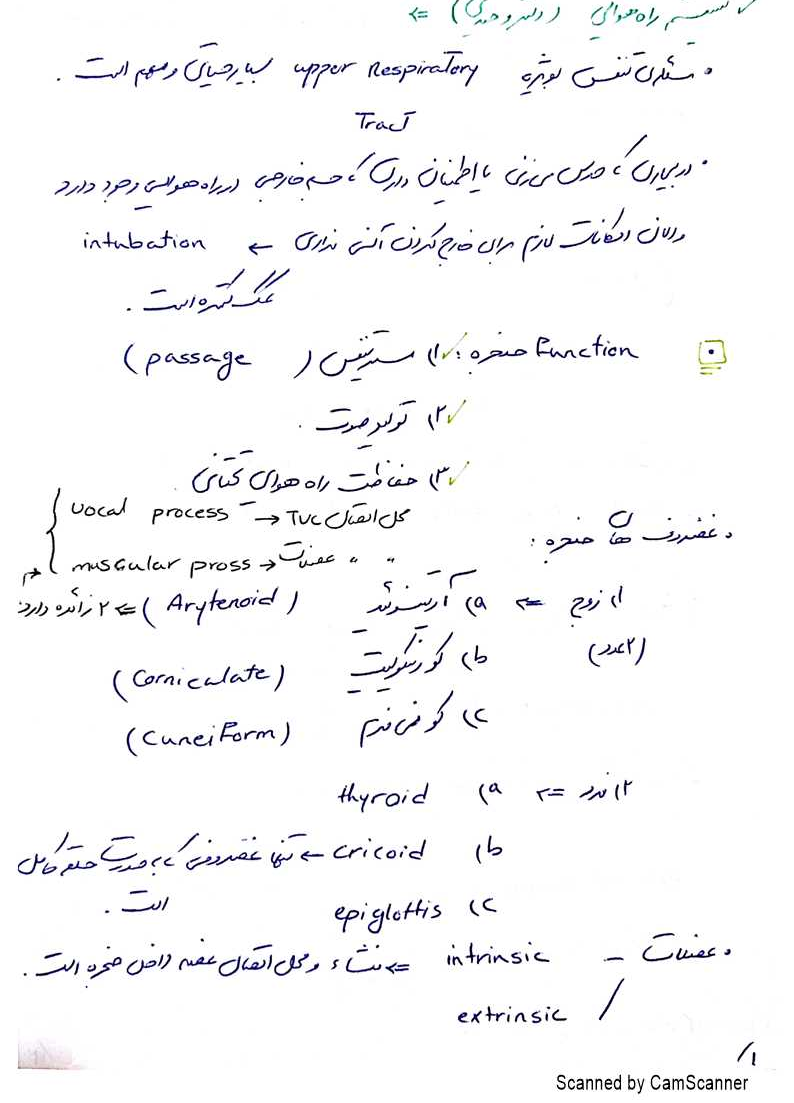 سیستم راه هوایی ( ) <=
• مسئله‌ی تنفس بویژه upper Respiratory بسیار حیاتی و مهم است .
Tract
• در بیماری که حدس می‌زنی یا اطمینان داری که جسم خارجی در راه هوایی وجود دارد
و امکانات لازم برای خارج کردن آنی نداری ← intubation
کننده است .
Function حنجره : ۱) مسیر تنفس ( passage )
۲) تولید صوت .
۳) حفاظت راه هوای تحتانی .
vocal process → محل اتصال TVC
muscular pross → " " عضلات
• غضروف های حنجره :
۱) زوج <= a) آریتنوئید ( Arytenoid ) <= ۲ زائده دارد :
(۲ عدد) b) کورنیکولیت (Corniculate)
c) کونی فرم (Cuneiform)
۲) فرد <= a) thyroid
b) cricoid ← تنها غضروفی که به صورت حلقه کامل
است .
c) epiglottis
• عضلات - intrinsic <= منشاء و محل اتصال عضله داخل حنجره است .
/ extrinsic
۱/
Scanned by CamScanner